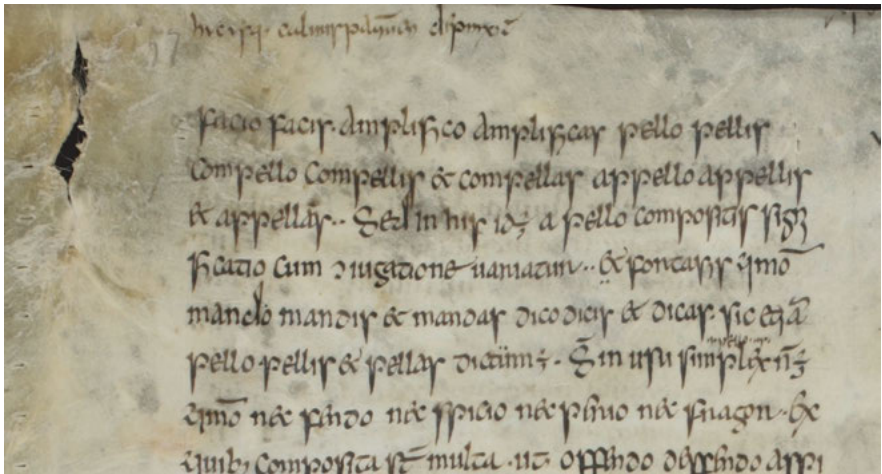 facio facis. amplifico amplificas pello pellis
compello compellis & compellas appello appellis
& appellas.. Sed in his id ÷ a pello compositis signi
ficatio cum ɔiugatione uariatur.. & fortassis quõ
mando mandis & mandas dico dicis & dicas. sic &iã
pello pellis & pellas dictum ÷. S̄ in usu simplex ñ ÷
quõ nec fendo nec spicio nec pleuo nec fragor. Ex
quib; composita st̄ multa. ut offendo defendo aspi